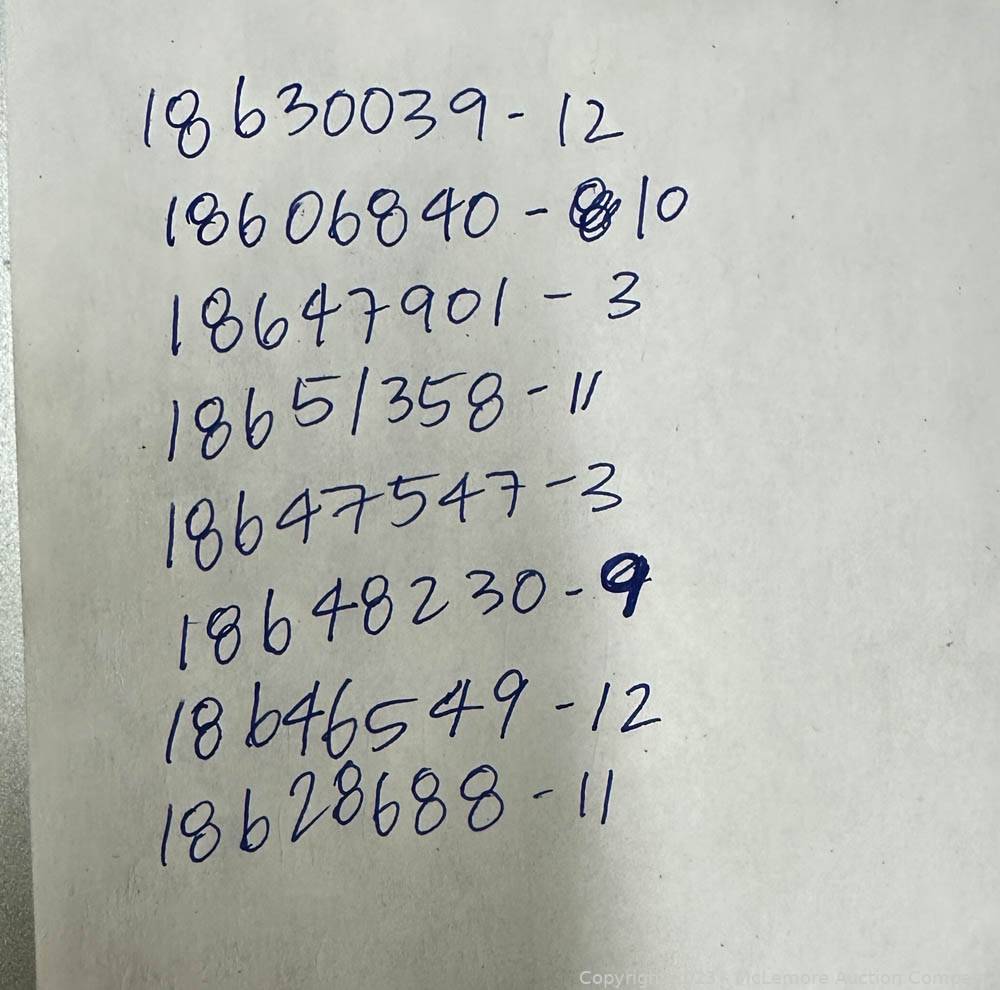 18630039 - 12
18606840 - 10
18647901 - 3
18651358 - 11
18647547 - 3
18648230 - 9
18646549 - 12
18628688 - 11
Copyright McLemore Auction Company